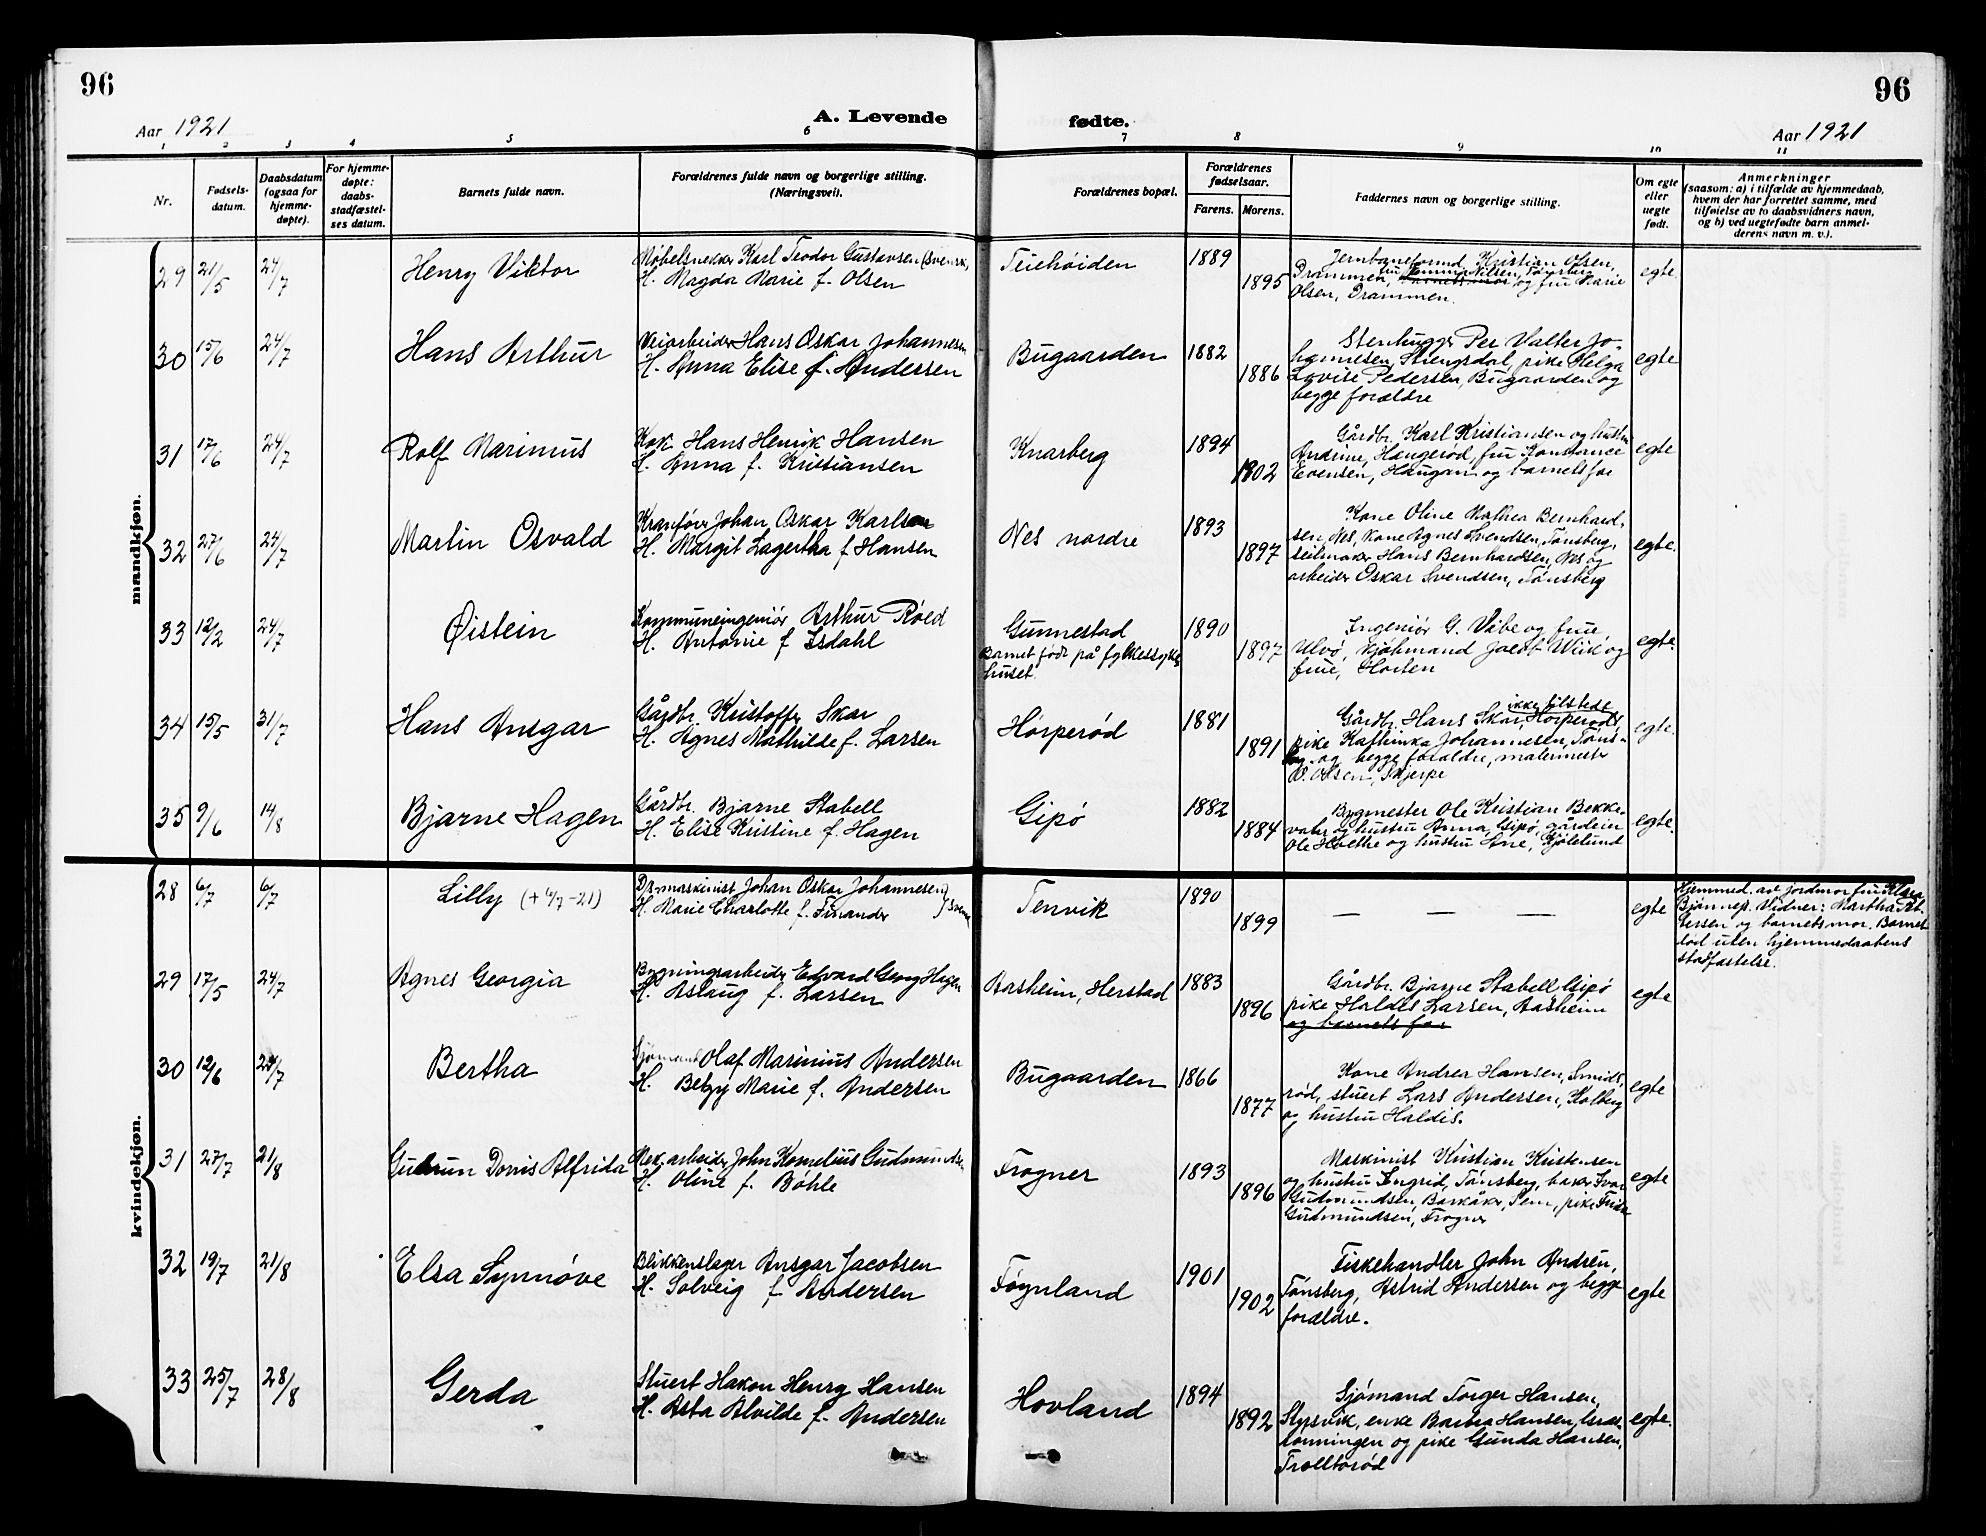 96
96
Aar 1921
A. Levende
fødte.
Aar 1921
1 2 3 4 5 6 7 8 9 10 11
Nr.
Fødsels-
datum.
Daabsdatum
(ogsaa for
hjemme-
døpte).
For hjemme-
døpte:
daabs-
stadfæstel-
ses datum.
Barnets fulde navn.
Forældrenes fulde navn og borgerlige stilling.
(Næringsvei).
Forældrenes bopæl.
Forældrenes
fødselsaar.
Farens. Morens.
Faddernes navn og borgerlige stilling.
Om egte
eller
uegte
født.
Anmerkninger
(saasom: a) i tilfælde av hjemmedaab,
hvem der har forrettet samme, med
tilføielse av to daabsvidners navn,
og b) ved uegtefødte barn anmel-
derens navn m. v.).
mandkjøn.
29 21/5 24/7 Henry Viktor
Møbelsnedker Karl Teodor Gustavsen (svensk)
H. Magda Marie f. Olsen
Teiehöiden
1889
1895
Jernbaneformd. Kristian Olsen,
Drammen, fru Nilsen, Tønsberg
barnets mor og fru Marie
Olsen, Drammen.
egte
30 15/6 24/7 Hans Arthur
Veiarbeider Hans Oskar Johannesen
H. Anna Elise f. Andersen
Bugaarden
1882
1886
Stenhugger Per Valter Jo-
hannesen, pike Helga
Lovise Pedersen, Bugaarden og
begge forældre
egte
31 17/6 24/7 Rolf Marinius
Kok Hans Henrik Hansen
H. Anna f. Kristiansen
Knarberg
1894
1902
Gårdbr. Karl Kristiansen og hustru
Andrine, Haugerød, fru Konstance
Evensen, Haugan og barnets far
egte
32 27/6 24/7 Martin Osvald
Kranfører Johan Oskar Karlsen
H. Margit Lagertha f. Hansen
Nes nordre
1893
1897
Kone Oline Mathea Bernhard-
sen, Nes, Kone Agnes Svendsen, Tønsberg,
seilmaker Hans Bernhardsen, Nes og
arbeider Oskar Svendsen, Tønsberg
egte.
33 12/2 24/7 Øistein
Kommuneingeniör Arthur Röed
H. Antonie f. Isdahl
Gunnestad
Barnet født på fylkessyke-
huset.
1890
1897
Ingeniör G. Vibe og frue,
Ulvö, kjöbmand Jacob Wiik og
frue, Horten
egte.
34 15/5 31/7 Hans Ansgar
Gårdbr. Kristoffer Skar
H. Agnes Mathilde f. Larsen
Hörperöd
1881
1891
ikke tilstede
Gårdbr. Hans Skar, Hörperöd,
pike Kathinka Johannesen, Töns-
berg og begge forældre, malermester
O. Olsen, Skjerpe
egte.
35 9/6 14/8 Bjarne Hagen
Gårdbr. Bjarne Stabell
H. Elise Kristine f. Hagen
Gipö
1882
1884
Bygmester Ole Kristian Bekke-
vahr og hustru Anna, Gipö, gårdeier
Ole Holthe og hustru Ane, Kjölelund
egte.
kvindekjøn.
28 6/7 6/7 Lilly (+ 6/7 -21)
Dr.maskinist Johan Oskar Johannesen
H. Marie Charlotte f. Finander
Tenvik
1890
1899
— — —
egte
Hjemmed. av jordmor fru Klara
Bjönnes. Vidner: Martha
og barnets mor. Barnet
död uten hjemmedaabens
stadfæstelse.
29 17/5 24/7 Agnes Georgia
Bygningsarbeider Edvard Georg Hagen
H. Aslaug f. Larsen
Aasheim, Herstad
1883
1896
Gårdbr. Bjarne Stabell Gipö
pike Haldis Larsen, Aasheim
og barnets far
egte
30 12/6 24/7 Bertha
Sjömand Olaf Marinius Andersen
H. Betzy Marie f. Andersen
Bugaarden
1866
1877
Kone Andrea Hansen, Smids-
röd, stuert Lars Andersen, Kolberg
og hustru Haldis.
egte
31 27/7 21/8 Gudrun Doris Alfrida
Mek. arbeider John Kornelius Gudmundsen
H. Oline f. Böhle
Trogner
1893
1896
Maskinist Kristian Kristensen
og hustru Ingrid, Tönsberg, baker Ivar
Gudmundsen, Barkåker, Sem, pike Frida
Gudmundsen, Frogner
egte
32 19/7 21/8 Elsa Synnöve
Blikkenslager Ansgar Jacobsen
H. Solveig f. Andersen
Föynland
1901
1902
Fiskehandler John Andrén,
Tönsberg, Astrid Andersen og begge
forældre.
egte
33 25/7 28/8 Gerda
Stuert Hakon Henry Hansen
H. Asta Alvilde f. Andersen
Hovland
1894
1892
Sjömand Torger Hansen,
enke Hansen,
og pike Gunda Hansen,
egte.